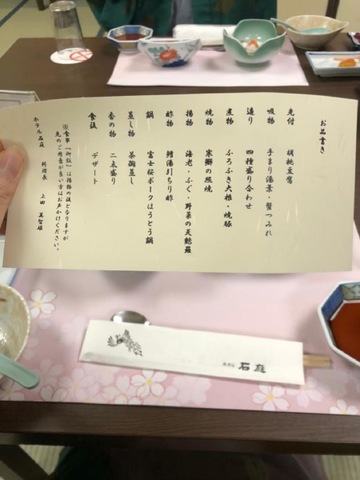 お品書き
先付　胡桃豆腐
吸物　手まり湯葉・蟹つみれ
造り　四種盛り合わせ
煮物　ふろふき大根・焼豚
焼物　寒鰤の照焼
揚物　海老・ふぐ・野菜の天麩羅
酢物　鱈湯引ちり酢
鍋　富士桜ポークほうとう鍋
蒸し物　茶碗蒸し
香の物　二点盛り
食後　デザート
ホテル石庭　料理長　上田
石庭